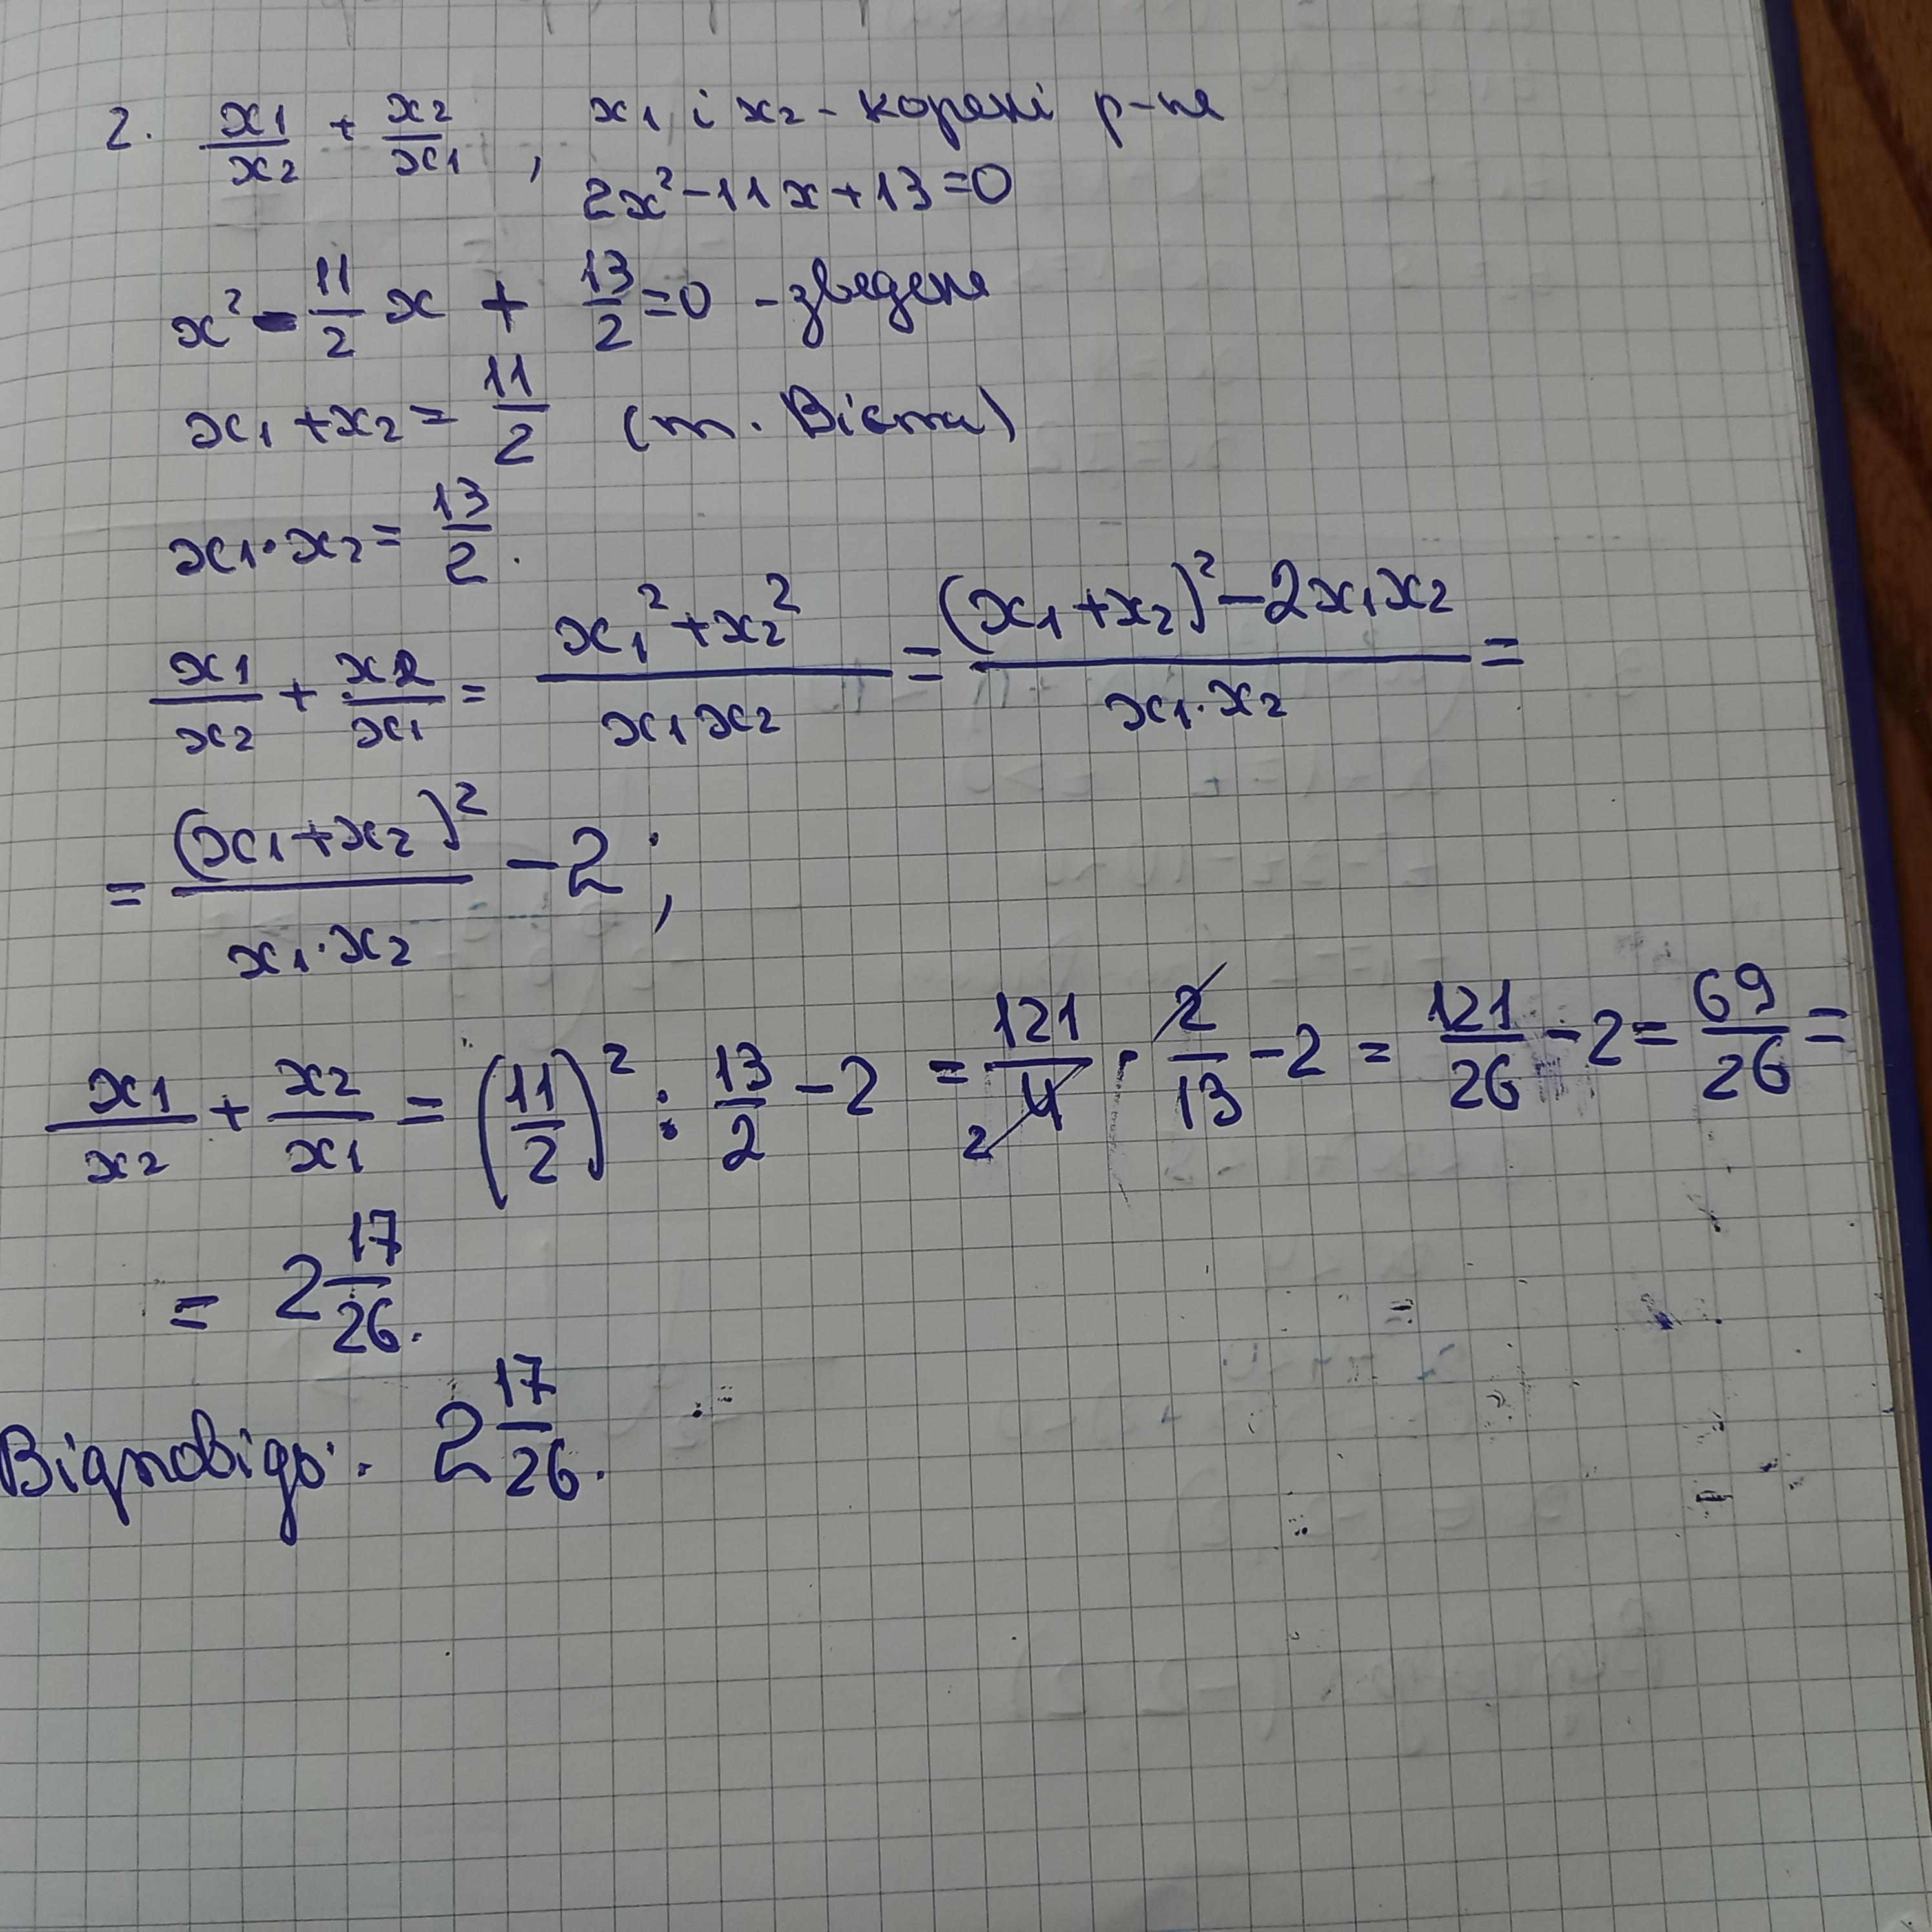 2. x₁/x₂ + x₂/x₁ , x₁ і x₂ - корені р-ня
2x² - 11x + 13 = 0
x² - 11/2 x + 13/2 = 0 - зведене
x₁ + x₂ = 11/2 (т. Вієта)
x₁ · x₂ = 13/2.
x₁/x₂ + x₂/x₁ = (x₁² + x₂²)/(x₁x₂) = ((x₁ + x₂)² - 2x₁x₂)/(x₁ · x₂) =
= (x₁ + x₂)²/(x₁ · x₂) - 2 ;
x₁/x₂ + x₂/x₁ = (11/2)² : 13/2 - 2 = 121/4 · 2/13 - 2 = 121/26 - 2 = 69/26 =
= 2 17/26.
Відповідь: 2 17/26.